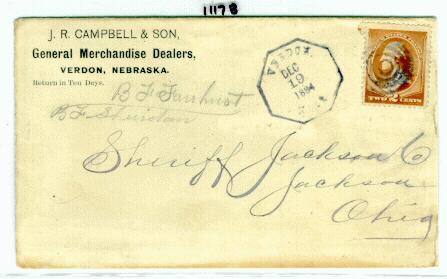 11178
J. R. CAMPBELL & SON,
General Merchandise Dealers,
VERDON, NEBRASKA.
Return in Ten Days.
B F
B F
VERDON.
DEC
19
1884
TWO 2 CENTS
Sheriff Jackson Co
Jackson
Ohio